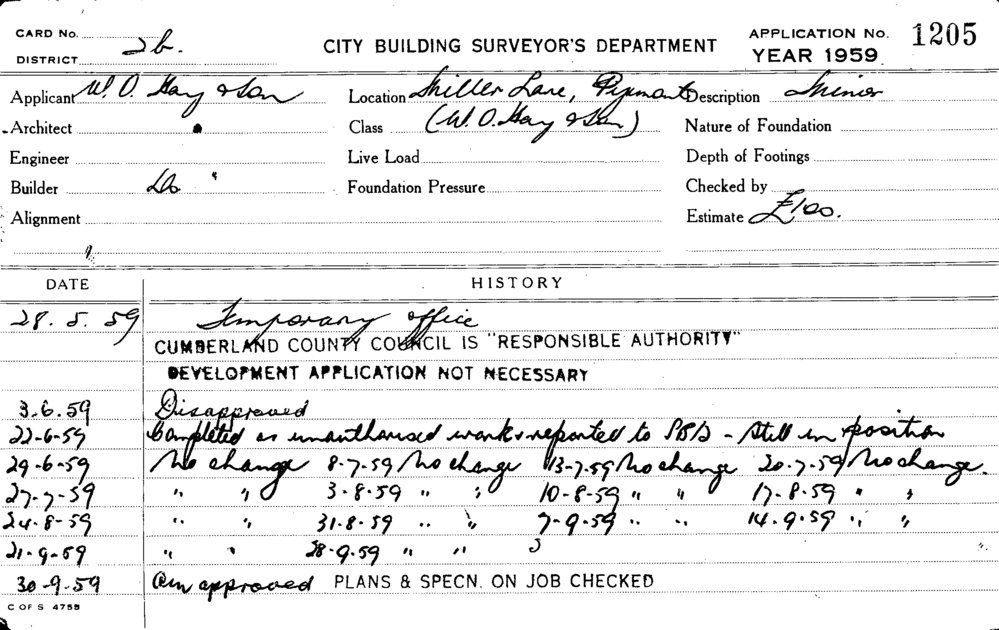 CARD No. 2b. CITY BUILDING SURVEYOR'S DEPARTMENT APPLICATION No. 1205
DISTRICT YEAR 1959
Applicant W. O. Hay & Son Location Miller Lane, Pyrmont Description Minor
Architect Class (W. O. Hay & Son) Nature of Foundation
Engineer Live Load Depth of Footings
Builder Do " Foundation Pressure Checked by
Alignment Estimate £100.
DATE HISTORY
28. 5. 59 Temporary office
CUMBERLAND COUNTY COUNCIL IS "RESPONSIBLE AUTHORITY"
DEVELOPMENT APPLICATION NOT NECESSARY
3.6.59 Disapproved
22-6-59 Completed as unauthorised work & reported to PBS - Still in position
29-6-59 No change 8-7-59 No change 13-7-59 No change 20-7-59 No change.
27-7-59 " " 3-8-59 " " 10-8-59 " " 17-8-59 " "
24-8-59 " " 31-8-59 " " 7-9-59 " " 14.9.59 " "
21-9-59 " " 28-9.59 " "
30-9-59 approved PLANS & SPECN. ON JOB CHECKED
C OF S 4758